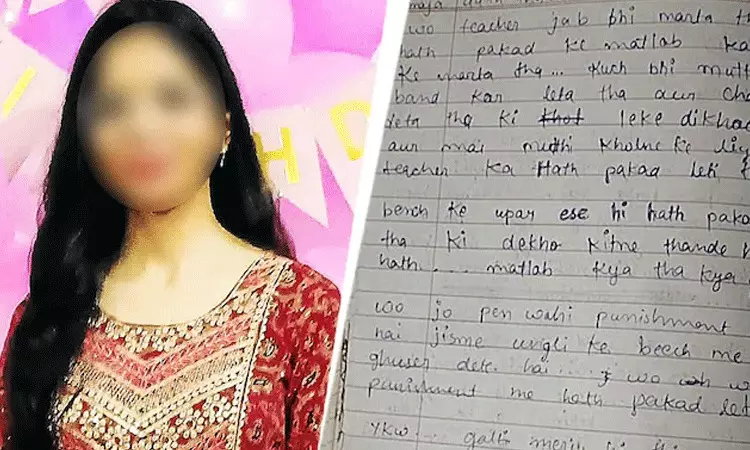 maja
wo teacher jab bhi marta th
hath pakad ke matlab ka
ke marta tha... kuch bhi mutt
band kar leta tha aur cha
deta tha ki leke dikhao
aur mai mudhi kholne ke liy
teacher ka hath pakad leti t
bench ke upar ese hi hath paka
tha ki dekho kitne thande h
hath.... matlab kya tha kya
woo jo pen wahi punishment
hai jisme ungli ke beech me
ghuser dete hai... wo
punishment me hath pakad let
YKW galti
H D